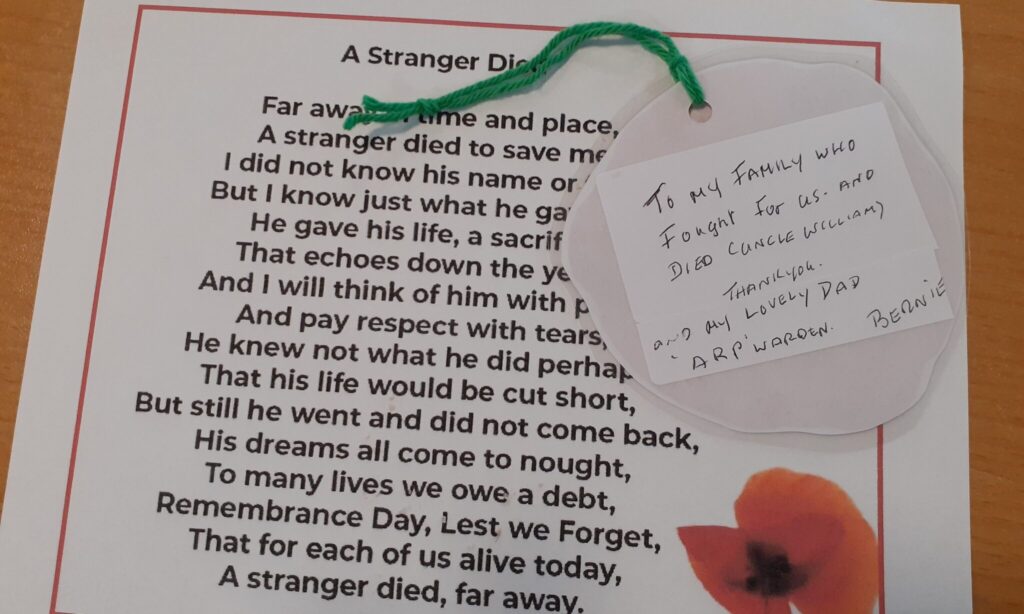 A Stranger Die
Far away time and place,
A stranger died to save me
I did not know his name or
But I know just what he ga
He gave his life, a sacrif
That echoes down the ye
And I will think of him with p
And pay respect with tears,
He knew not what he did perhap
That his life would be cut short,
But still he went and did not come back,
His dreams all come to nought,
To many lives we owe a debt,
Remembrance Day, Lest we Forget,
That for each of us alive today,
A stranger died, far away.
TO MY FAMILY WHO
FOUGHT FOR US. AND
DIED (UNCLE WILLIAM)
THANKYOU.
AND MY LOVELY DAD
'ARP' WARDEN. BERNIE